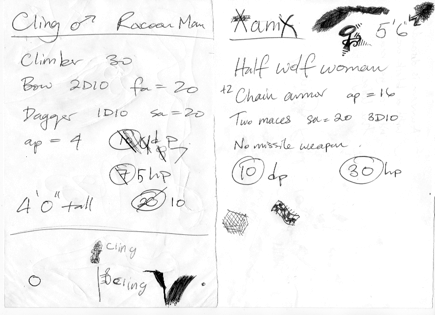 Cling ♂ Racoon Man
Climber 30
Bow 2D10 fa = 20
Dagger 1D10 sa = 20
ap = 4
dp
5hp
4'0" tall
10
cling
cling
Xanix
♀ 5'6"
Half wolf woman
+2 Chain armor ap = 16
Two maces sa = 20 3D10
No missile weapon.
10 dp
30 hp